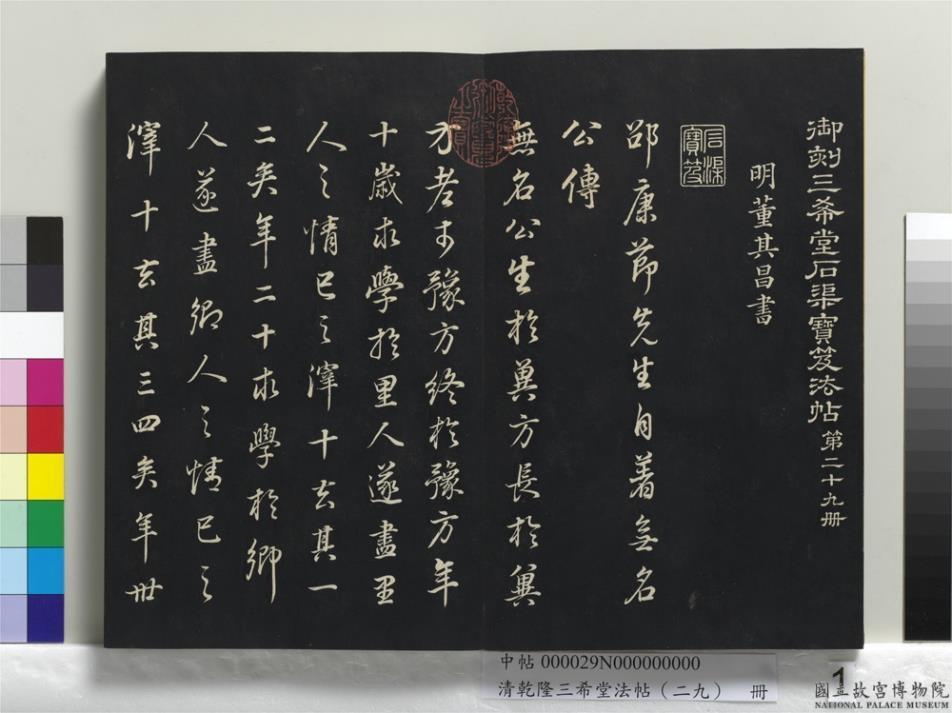 御刻三希堂石渠寶笈法帖第二十九冊
明董其昌書
石渠寶笈
邵康節先生自著無名
公傳
無名公生於冀方長於冀
方老於豫方終於豫方年
十歲求學於里人遂盡里
人之情己之滓十去其一
二矣年二十求學於鄉
人遂盡鄉人之情己之
滓十去其三四矣年卅
中帖 000029N000000000
清乾隆三希堂法帖（二九） 冊
1
國立故宮博物院
NATIONAL PALACE MUSEUM